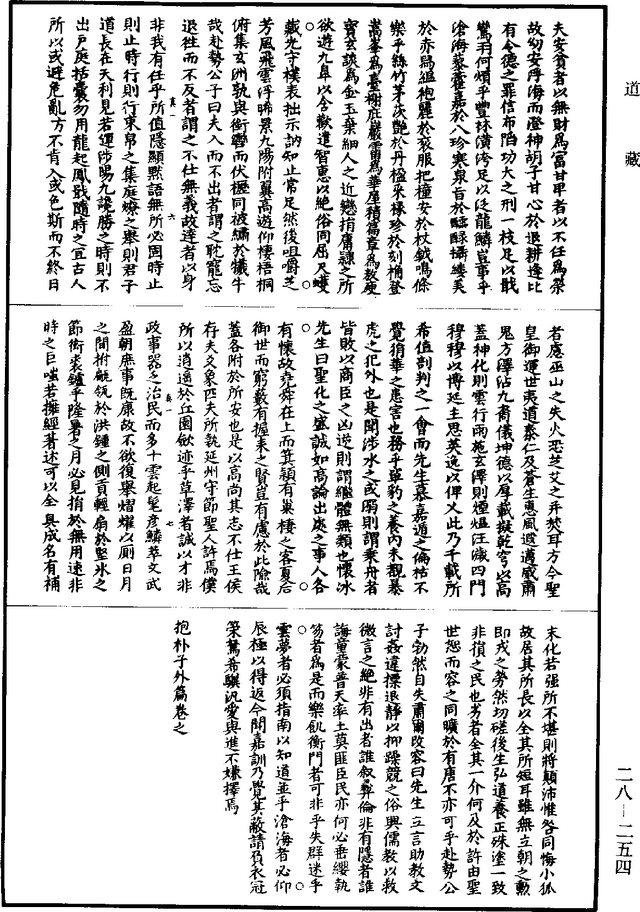 道藏
夫安貧者以無財爲富甘卑者以不仕爲榮
故幼安浮海而澄神胡子甘心於退耕逢比
有令德之罪信布陷功大之刑一枝足以戢
鸞羽何煩乎豐林潢洿足以泛龍鱗豈事乎
滄海藜藿嘉於八珍寒泉旨於醽醁攝縷美
於赤舄縕袍麗於衮服把橦安於杖鉞鳴條
樂乎絲竹茅茨艷於丹楹采椽珍於刻桷登
嵩峯爲臺榭庇巖霤爲華屋積篇章爲敖庾
寶玄談爲金玉棄細人之近戀捐庸隸之所
欲遊九臯以含歡遣智慧以絶俗同屈尺蠖
藏光守樸表拙示訥知止常足然後咀嚼芝
芳風飛雲浮晞景九陽附翼高遊仰棲梧桐
俯集玄洲孰與銜轡而伏櫪同被繡於犧牛
哉赴勢公子曰夫入而不出者謂之耽寵忘
退往而不反者謂之不仕無義故達者以身
非我有任乎所值隱顯默語無所必固時止
則止時行則行束帛之集庭燎之舉則君子
道長在天利見若運涉陽九讒勝之時則不
出戶庭括囊勿用龍起鳳戢隨時之宜古人
所以或避危亂方不肯入或色斯而不終日
者慮巫山之失火恐芝艾之并焚耳方今聖
皇御運世夷道泰仁及蒼生惠風遐邁威肅
鬼方澤沾九裔儀坤德以厚載擬乾穹以高
蓋神化則雲行雨施玄澤則煙熅汪濊四門
穆穆以博延主思英逸以俾乂此乃千載所
希值剖判之一會而先生慕嘉遁之偏枯不
覺狷華之患害也務乎單豹之養內未覩暴
虎之犯外也是聞涉水之或溺則謂乘舟者
皆敗以商臣之凶逆則謂繼體無類也懷冰
先生曰聖化之盛誠如高論出處之事人各
有懷故堯舜在上而箕潁有巢棲之客夏后
御世而窮藪有握耒之賢豈有慮於此險哉
蓋各附於所安也是以高尚其志不仕王侯
存夫爻象匹夫所執延州守節聖人許焉僕
所以逍遙於丘園斂迹乎草澤者誠以才非
政事器乏治民而多士雲起髦彥鱗萃文武
盈朝庶事旣康故不欲復舉熠燿以廁日月
之間拊甂瓴於洪鍾之側貢輕扇於堅冰之
節衒裘鑪乎隆暑之月必見捐於無用速非
時之巨嗤若擁經著述可以全真成名有補
末化若強所不堪則將顛沛惟咎同悔小狐
故居其所長以全其所短耳雖無立朝之勳
即戎之勞然切磋後生弘道養正殊塗一致
非損之民也劣者全其一介何及於許由聖
世恕而容之同曠於有唐不亦可乎赴勢公
子勃然自失肅爾改容曰先生立言助教文
討姦違摽退靜以抑躁競之俗興儒教以救
微言之絶非有出者誰敍彝倫非有隱者誰
誨童蒙普天率土莫匪臣民亦何必垂纓執
笏者爲是而樂飢衡門者可非乎夫群迷乎
雲夢者必須指南以知道並乎滄海者必仰
辰極以得返今聞嘉訓乃覺其蔽請負衣冠
策駑希驥汎愛與進不嫌擇焉
抱朴子外篇卷之
二八—二五四